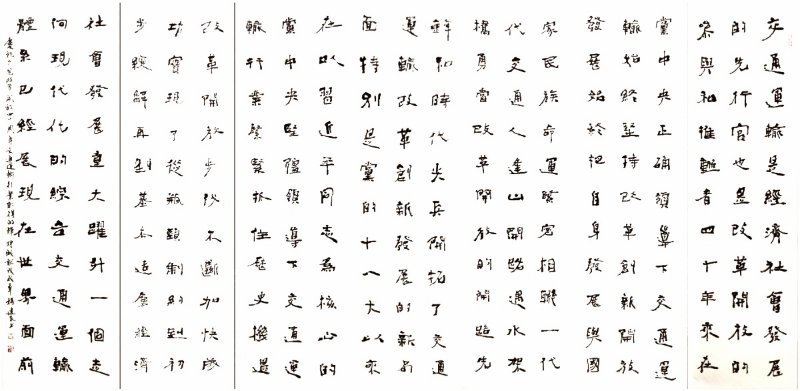 交通運輸是經濟社會發展
的先行官也是改革開放的
參與和推動者四十年來在
黨中央正確領導下交通運
輸始終堅持改革創新開放
發展始終把自身發展與國
家民族命運緊密相聯一代
代交通人逢山開路遇水架
橋勇當改革開放的開路先
鋒和時代尖兵開拓了交通
運輸改革創新發展的新局
面特別是黨的十八大以來
在以習近平同志為核心的
黨中央堅強領導下交通運
輸行業緊緊抓住歷史機遇
改革開放步伐不斷加快
功實現了從瓶頸制約到初
步緩解再到基本適應經濟
社會發展重大躍升一個走
向現代化的綜合交通運輸
體系已經展現在世界面前